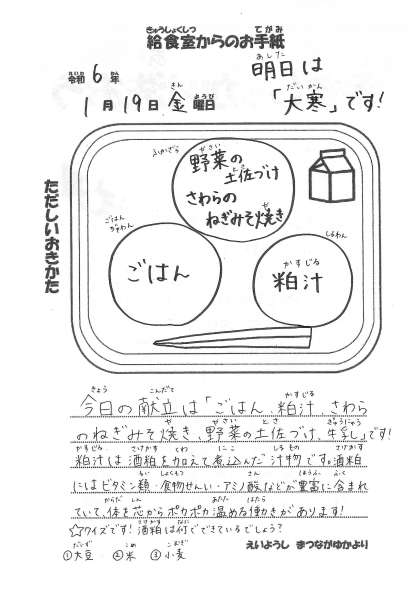 きゅうしょくしつ てがみ
給食室からのお手紙
れいわ ねん
令和6年
あした
明日は
さん ようび
1月19日金曜日
だいかん
「大寒」です!
ただしいおきかた
ふかざら
やさい
野菜の
とさ
土佐づけ
さわらの
や
ねぎみそ焼き
ごはん
ぢゃわん
ごはん
しるわん
かすじる
粕汁
きょう こんだて かすじる
今日の献立は「ごはん、粕汁、さわら
や やさい とさ ぎゅうにゅう
のねぎみそ焼き、野菜の土佐づけ、牛乳」です!
かすじる さけかす くわ にこ しるもの さけかす
粕汁は酒粕を加えて煮込んだ汁物です。酒粕
るい しょくもつ さん ほうふ ふく
にはビタミン類・食物せんい・アミノ酸などが豊富に含まれ
からだ しん あたた はたら
ていて、体を芯からポカポカ温める働きがあります!
さけかす なに
☆クイズです!酒粕は何でできているでしょう?
だいず こめ こむぎ
①大豆 ②米 ③小麦
えいようし まつながゆかより